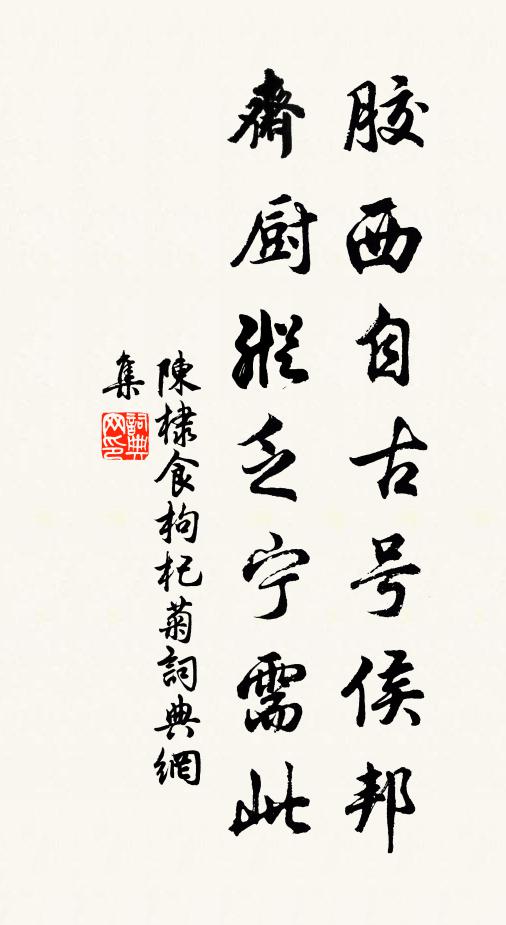 胶西自古号侯邦
齋厨縱乏宁需此
陳棣食枸杞菊詞典網
集
詞典
网印